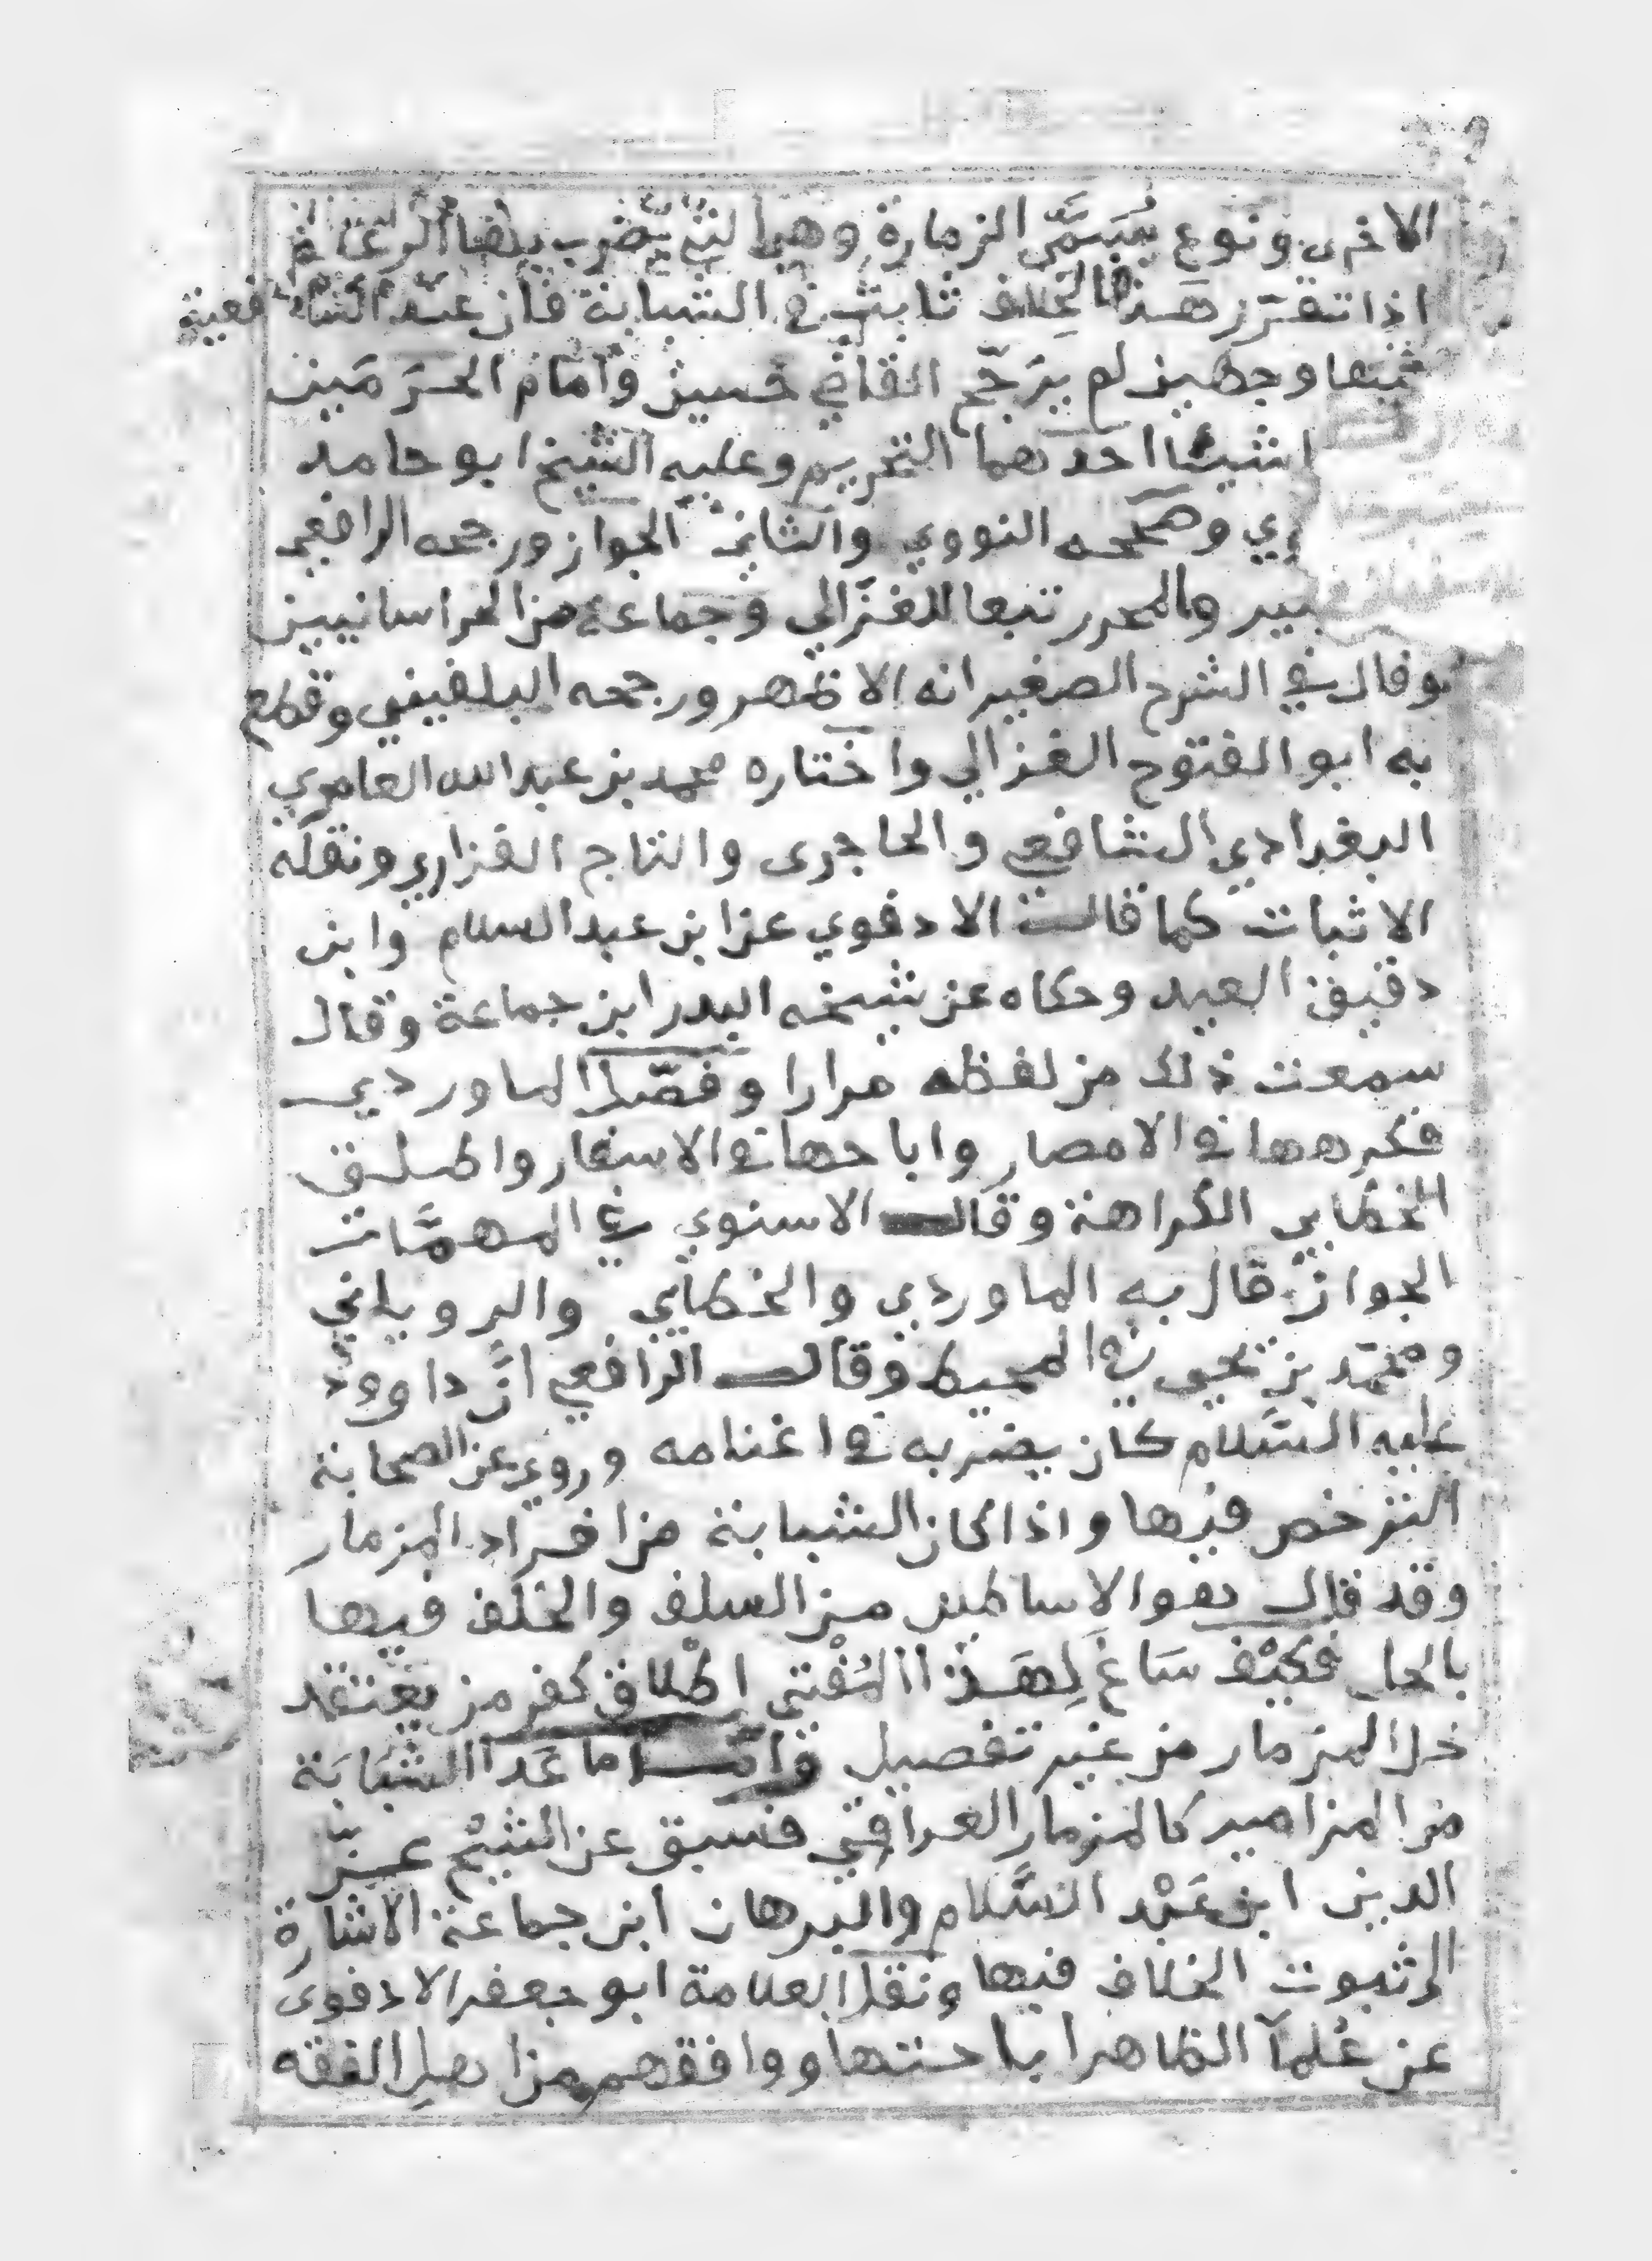 الاخرى ونوع يسمى الزمارة وهي التي يضرب بها الرعاة
اذا تقرر هذا فالخلاف ثابت في الشبابة فان عند الشافعية
فيها وجهين لم يرجح القاضي حسين وامام الحرمين
شيئا احدهما التحريم وعليه الشيخ ابو حامد
وصححه النووي والثاني الجواز ورجحه الرافعي
والمحرر تبعا للغزالي وجماعة من الخراسانيين
وقال في الشرح الصغير انه الاظهر ورجحه البلقيني وقطع
به ابو الفتوح الغزالي واختاره محمد بن عبد الله العامري
البغدادي الشافعي والحاجرى والتاج الفزاري ونقله
الاثبات كما قال الادفوي عن ابن عبد السلام وابن
دقيق العيد وحكاه عن شيخه البدر ابن جماعة وقال
سمعت ذلك من لفظه مرارا وفصل الماوردي
فكرهها في الامصار واباحها في الاسفار واطلق
الخطابي الكراهة وقال الاسنوي في المهمات
الجواز قال به الماوردي والخطابي والروياني
ومحمد بن يحيى في المحيط وقال الرافعي ان داوود
عليه السلام كان يضرب به في اغنامه وروي عن الصحابة
الترخص فيها واذا كان الشبابة من افراد المزمار
وقد قال هو الاساطين من السلف والخلف فيها
بالحل فكيف ساغ لهذا المفتي اطلاق كفر من يعتقد
حل المزمار من غير تفصيل واما ما عدا الشبابة
من المزامير كالمزمار العراقي فسبق عن الشيخ عز
الدين ابن عبد السلام والبرهان ابن جماعة الاشارة
الى ثبوت الخلاف فيها ونقل العلامة ابو جعفر الادفوى
عن علمآ الظاهر اباحتها ووافقهم من اهل الفقه